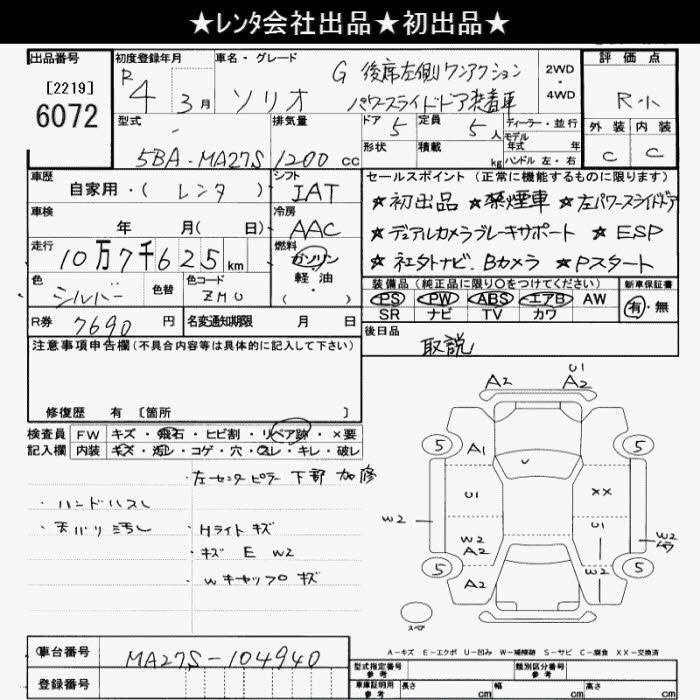 ★レンタ会社出品★初出品★
出品番号
[2219]
6072
初度登録年月
R4年3月
車名・グレード
ソリオ G 後席左側ワンアクション
パワースライドドア装着車
2WD・4WD
評価点
R小
外装 内装
C C
型式
5BA-MA27S
排気量
1200cc
ドア 5
定員 5人
形状
積載 kg
ディーラー・並行
モデル
年式 年
ハンドル 左・右
車歴
自家用・(レンタ)
シフト
IAT
セールスポイント(正常に機能するものに限ります)
★初出品 ★禁煙車 ★左パワースライドドア
★デュアルカメラブレーキサポート ★ESP
★社外ナビ.Bカメラ ★Pスタート
車検
年 月( 日)
冷房
AAC
走行
10万7千625km
燃料
ガソリン
軽・油
・( )
色
シルバー
色替
色コード
ZMU
装備品(純正品に限り○をつけてください)
PS PW ABS エアB AW
SR ナビ TV カワ
新車保証書
有・無
R券 7690円
名変通知期限 月 日
後日品
取説
注意事項申告欄(不具合内容等は具体的に記入して下さい)
修復歴 有 〔箇所 〕
検査員
記入欄
FW キズ・飛石・ヒビ割・リペア跡・×要
内装 キズ・汚レ・コゲ・穴・スレ・キレ・破レ
・左センタピラー下部加修
・ハンドルスレ
・天バリ汚レ
・Hライトキズ
・キズ E W2
・Wキャップキズ
A2
U1
A2
5
A1
5
U
U1
XX
W2
U1
W2
W2
A2
5
A2
W2
5
スペア
A-キズ E-エクボ U-凹み W-補修跡 S-サビ C-腐食 XX-交換済
車台番号
MA27S-104940
登録番号
型式指定番号
参考
類別区分番号
参考
車庫証明用
参考
長さ cm
幅 cm
高さ cm